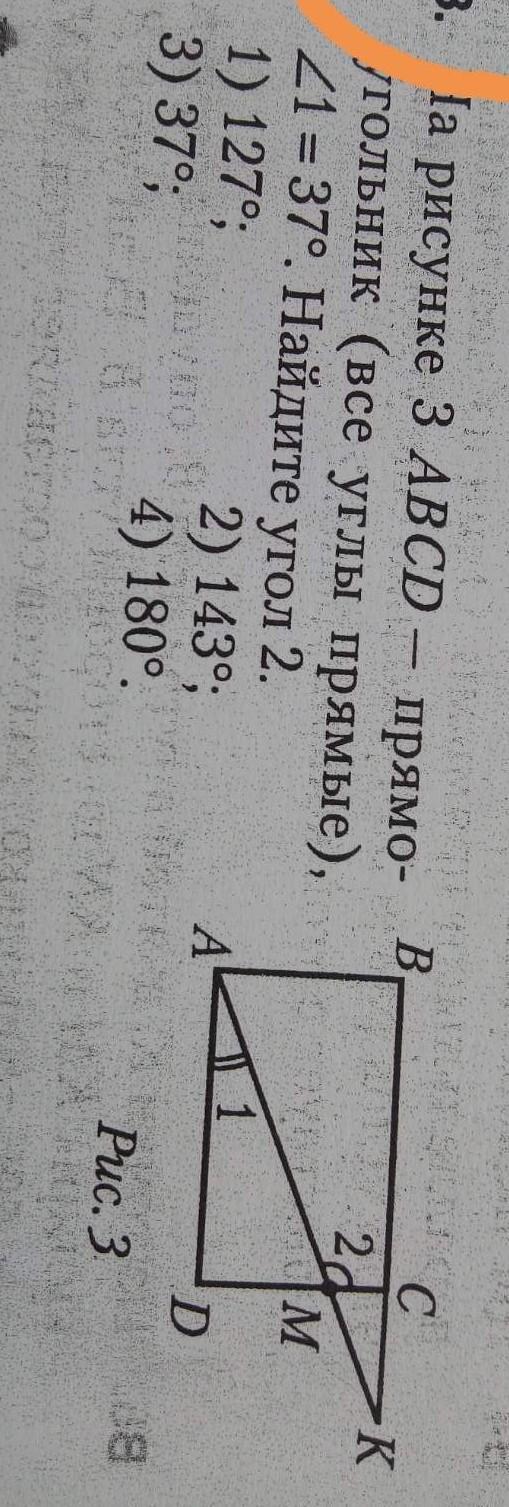 3. На рисунке 3 ABCD — прямо-
угольник (все углы прямые),
∠1 = 37°. Найдите угол 2.
1) 127°; 2) 143°;
3) 37°; 4) 180°.
B C K
2
M
1
A D
Рис. 3